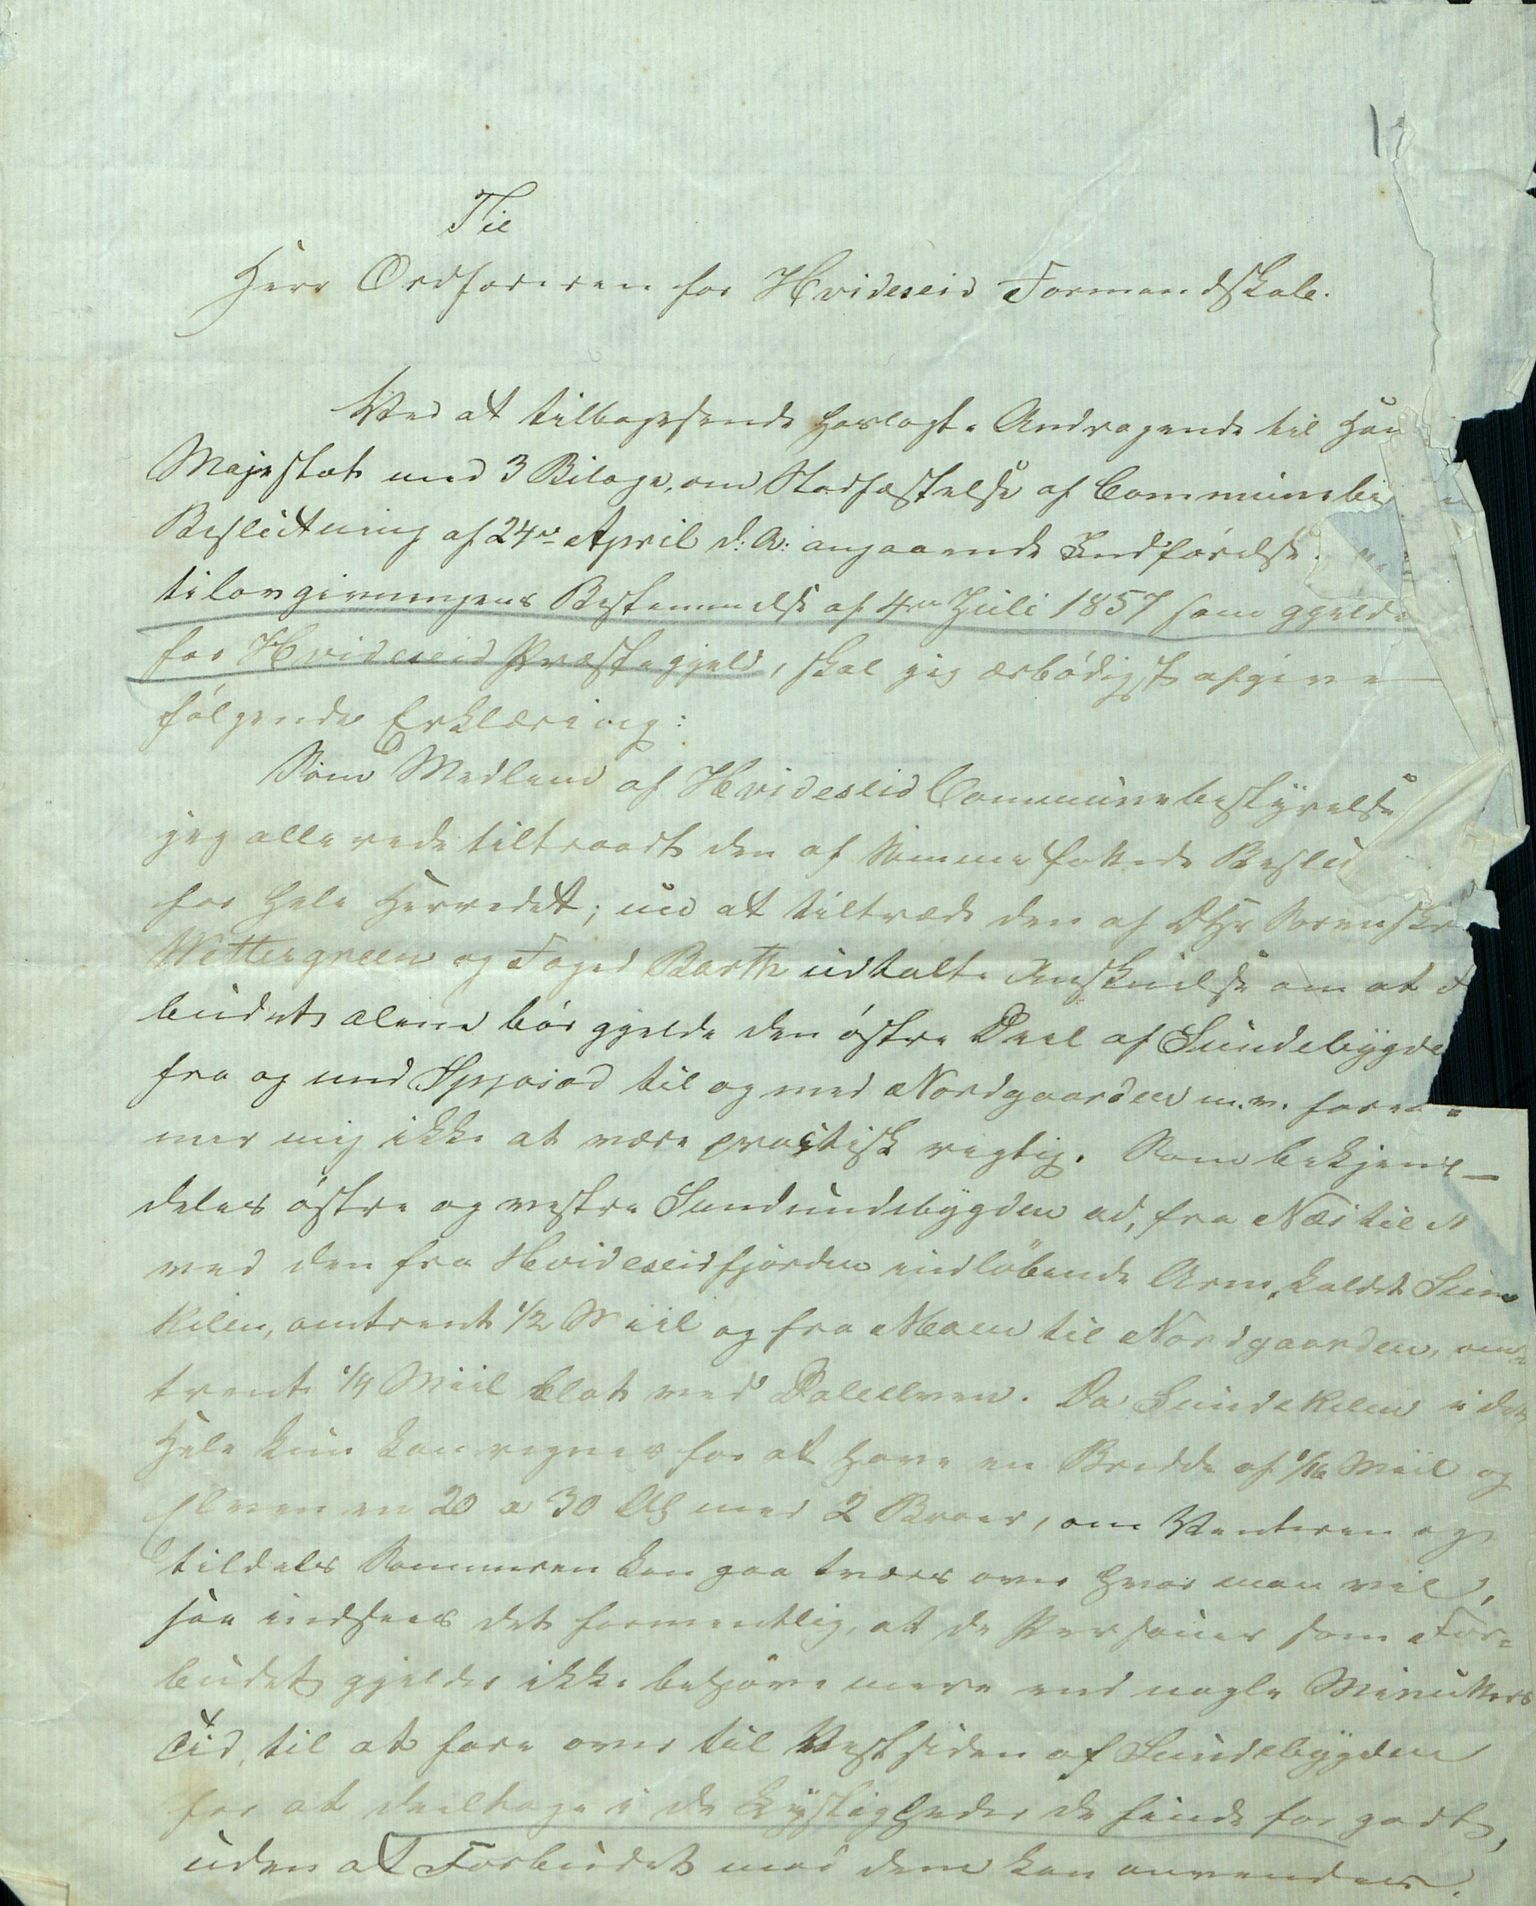 Til
Herr Ordføreren for Hvideseid Formandskab.
Ved at tilbagesende hoslagte Andragende til Han
Majestæt med 3 Bilage, om Stadfæstelse af Communebe
Beslutning af 24de April d: A: angaaende Indførelse
tilovgivningens Bestemmelse af 4de Juli 1857 som gjelde
for Hvideseid Præstegjeld, skal jeg ærbødigst afgive
følgende Erklæring:
Som Medlem af Hvideseid Communebestyrelse
jeg allerede tiltraadt den af Samme fattede Beslu
for hele Herredet; men at tiltræde den af DHr Sorenskr
Wettergreen og Foged Barth udtalte Anskuelse om at F
budet alene bør gjelde den østre Deel af Sundebygde
fra og med Spjosod til og med Nordgaarden m.v. forek
mer mig ikke at være practisk rigtig. Som bekjent
deles østre og vestre Sundundebygden ad, fra Næs til M
ved den fra Hvideseidfjorden indløbende Arm, kaldt Sun
kilen, omtrent 1/2 Miil og fra Moen til Nordgaarden, om
trent 1/4 Miil blot ved Dalelven. Da Sundekilen i det
Hele kun kan regnes for at have en Bredde af 1/16 Miil og
Elven en 20 a 30 Al med 2 Broer, om Vinteren og
tildels Sommeren kan gaa tværs over hvor man vil,
saa indsees det formentlig, at de Personer som For-
budet gjelder ikke behøve mere end nogle Minutters
Tid, til at fare over til Vestsiden af Sundebygden
for at deeltage i de Lystigheder de finde for godt,
uden at Forbudet mod dem kan anvendes.